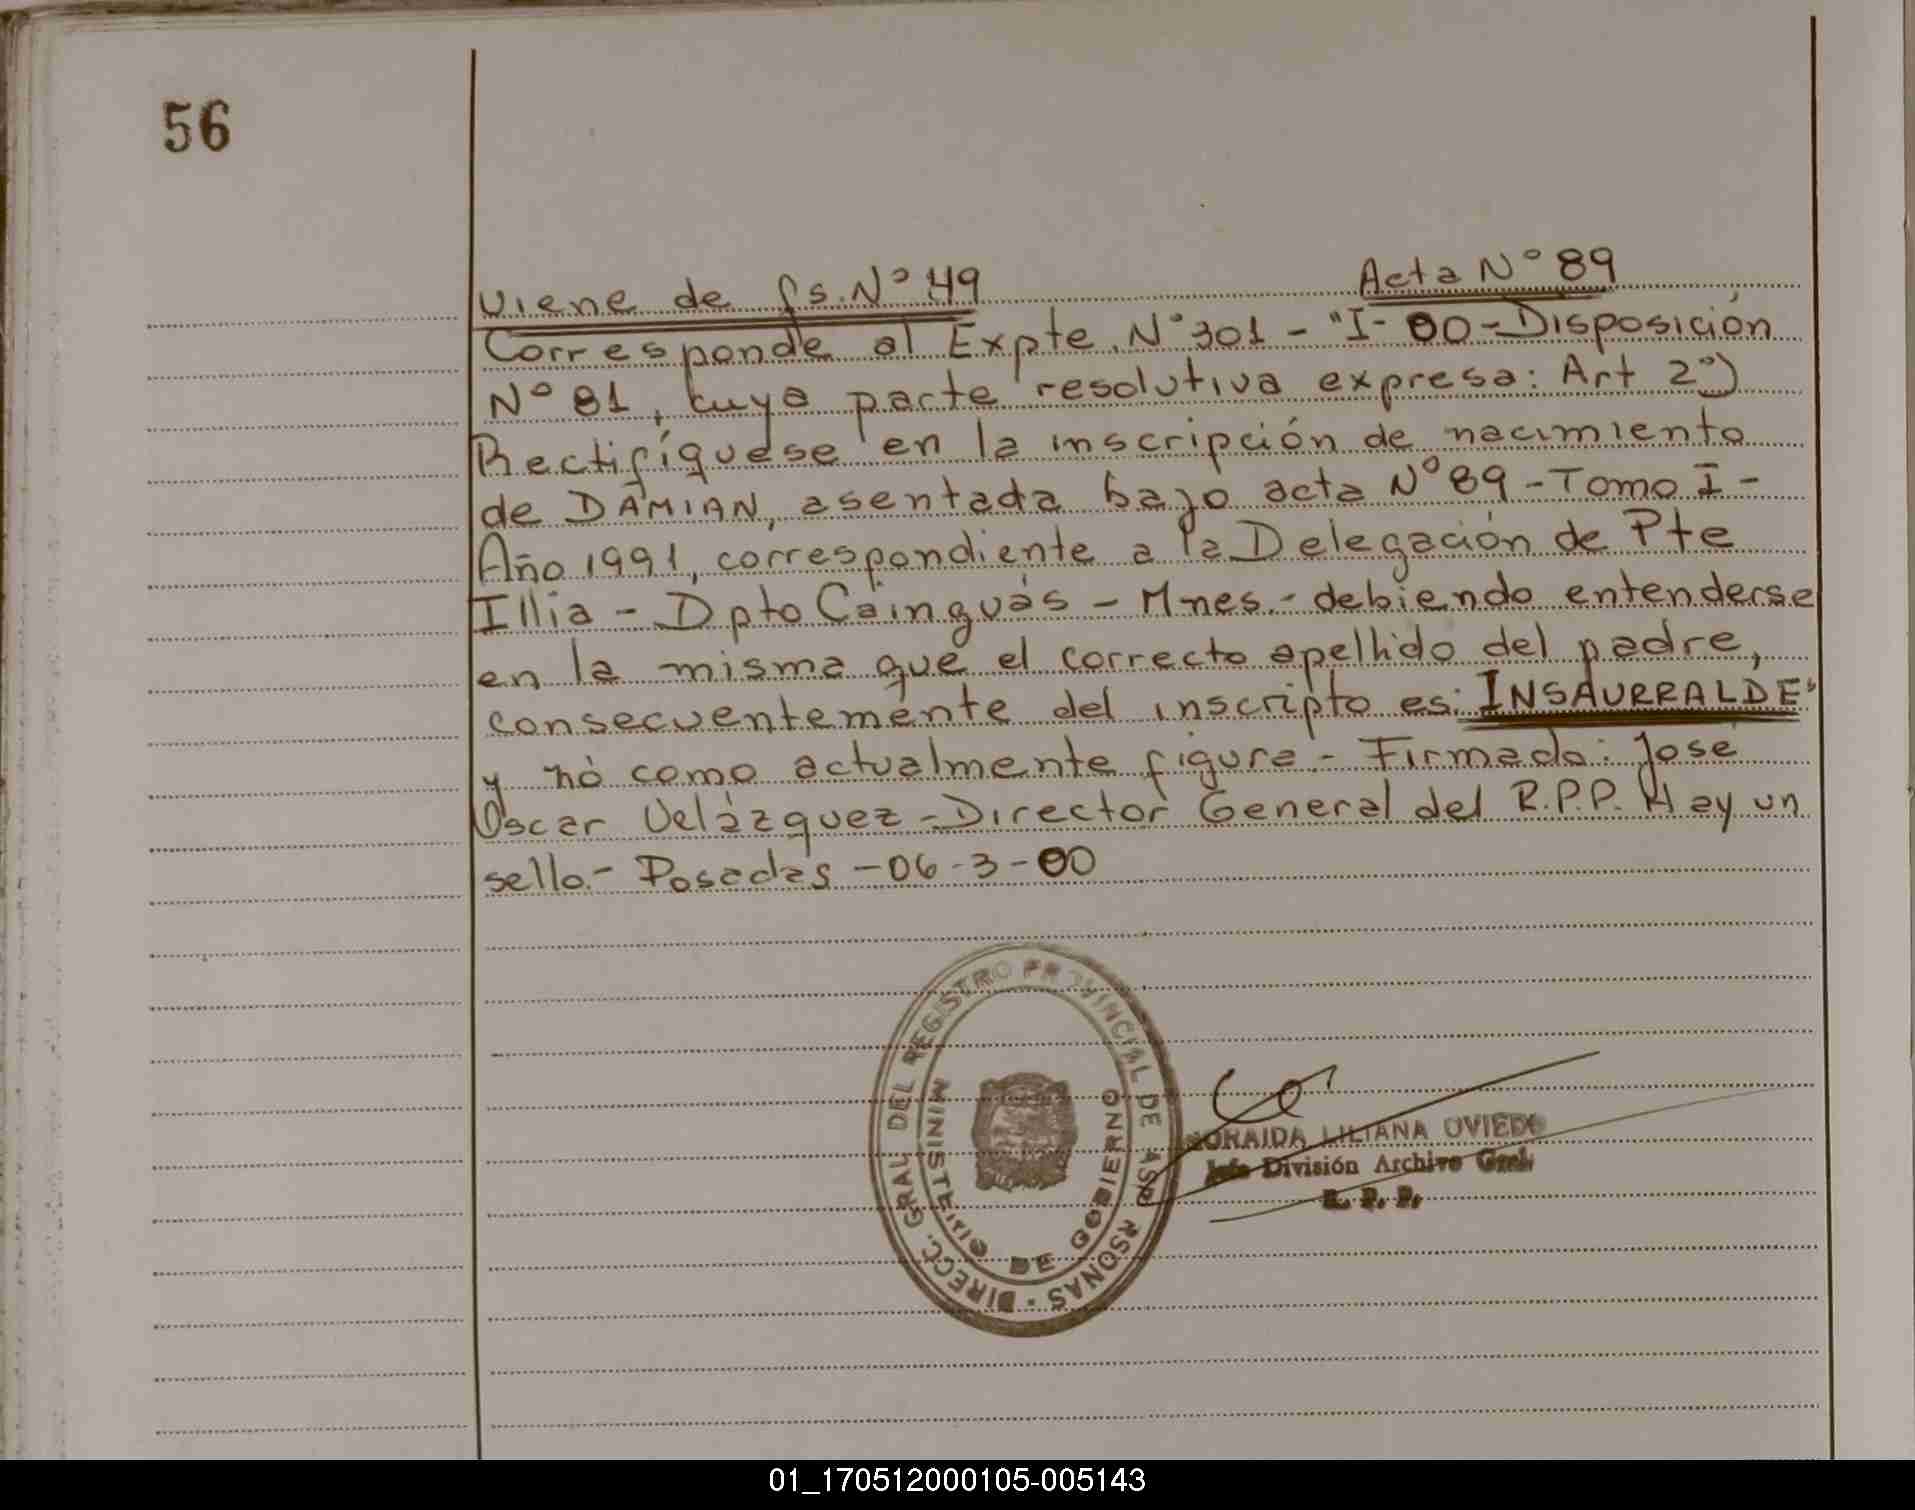 56
Viene de fs. N° 49
Acta N° 89
Corresponde al Expte. N° 301 - "I- 00 - Disposición
N° 81, cuya parte resolutiva expresa: Art 2°)
Rectifíquese en la inscripción de nacimiento
de DAMIAN, asentada bajo acta N° 89 - Tomo I -
Año 1991, correspondiente a la Delegación de Pte
Illia - Dpto Cainguás - Mnes. - debiendo entenderse
en la misma que el correcto apellido del padre,
consecuentemente del inscripto es: INSAURRALDE"
y nó como actualmente figura. - Firmado: José
Oscar Velázquez - Director General del R.P.P. Hay un
sello. - Posadas - 06-3-00
DIRECC. GRAL DEL REGISTRO PROVINCIAL DE RSONAS
MINISTERIO DE GOBIERNO
ORAIDA LILIANA OVIEDO
Jefe División Archivo Gral.
R. P. P.
01_170512000105-005143